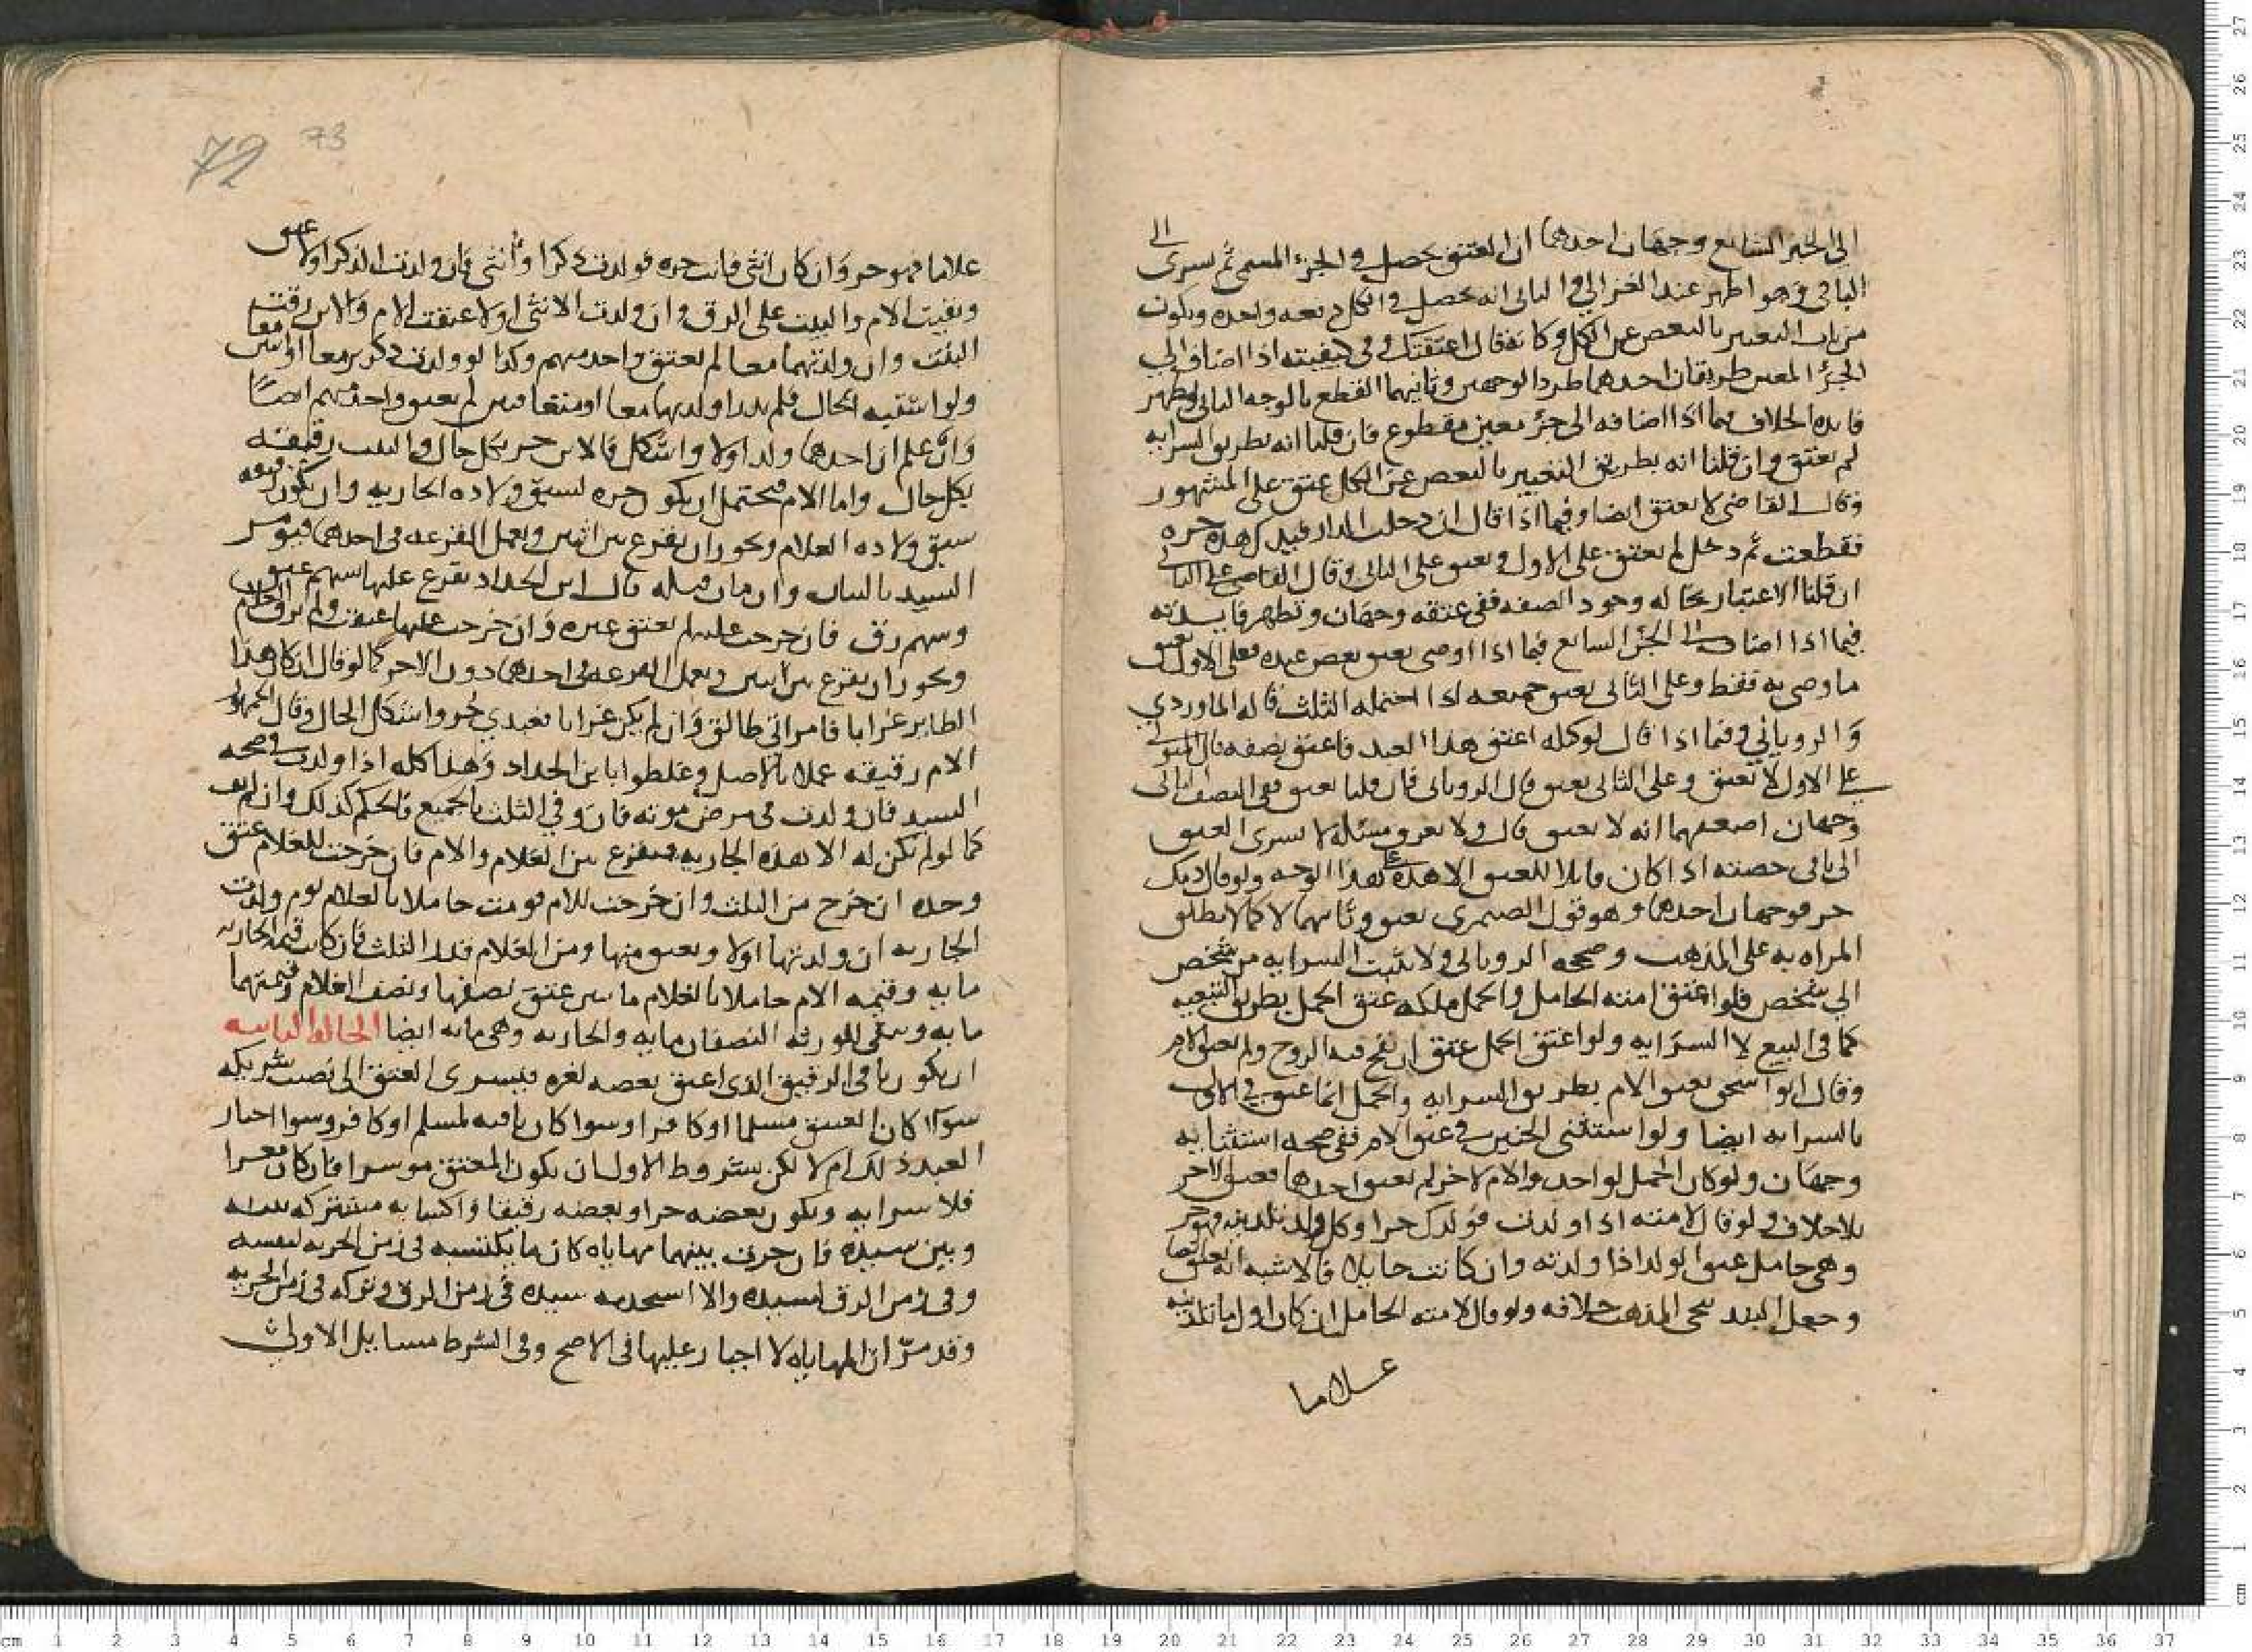 الى الجزء الشايع وجهان احدهما ان العتق يحصل في الجزء المسمى ثم يسرى الى
الباقي وهو اظهر عند الغزالي والثاني انه يحصل في الكل دفعه واحده ويكون
من باب التعبير بالبعض عن الكل وكانه قال اعتقتك وفي كيفيته اذا اضاف الى
الجزء المعين طريقان احدهما طرد الوجهين وثانيهما القطع بالوجه الثاني وتظهر
فايده الخلاف فيما اذا اضافه الى جزء معين مقطوع فان قلنا انه بطريق السرايه
لم يعتق وان قلنا انه بطريق التعبير بالبعض عن الكل عتق على المشهور
وقال القاضي لا يعتق ايضا وفيما اذا قال ان دخلت الدار فيدك هذه حره
فقطعت ثم دخل لم يعتق على الاول ويعتق على الثاني وقال القاضي على الثاني
ان قلنا الاعتبار بحاله وجود الصفه ففي عتقه وجهان وتظهر فايدته
فيما اذا اضاف الى الجزء الشايع فيما اذا اوصى بعتق بعض عبده فعلى الاول يعتق
ما وصى به فقط وعلى الثاني يعتق جميعه اذا احتمله الثلث قاله الماوردي
والروياني وفيما اذا قال لوكيله اعتق هذا العبد فاعتق نصفه قال المتولي
على الاول لا يعتق وعلى الثاني يعتق قال الروياني فان قلنا يعتق ففي النصف الثاني
وجهان اصحهما انه لا يعتق قال ولا يعرف مسئله لا يسرى العتق
الى باقي حصته اذا كان قابلا للعتق الا هذه على هذا الوجه ولو قال ديك
حر فوجهان احدهما وهو قول الصيمري يعتق وثانيهما لا كما لا تطلق
المراه به على المذهب وصححه الروياني ولا تثبت السرايه من شخص
الى شخص فلو اعتق امته الحامل والحمل ملكه عتق الحمل بطريق التبعيه
كما في البيع لا السرايه ولو اعتق الحمل عتق ان نفخ فيه الروح ولم يعتق الام
وقال ابو اسحق يعتق الام بطريق السرايه والحمل انما عتق في الاولى
بالسرايه ايضا ولو استثنى الجنين في عتق الام ففي صحه استثنايه
وجهان ولو كان الحمل لواحد والام لاخر لم يعتق احدهما بعتق الاخر
بلا خلاف ولو قال لامته اذا ولدت فولدك حر او كل ولد تلدينه فهو حر
وهي حامل عتق الولد اذا ولدته وان كانت حايلا فالاشبه انه يعتق ايضا
وجعل البندنيجي المذهب خلافه ولو قال لامته الحامل ان كان اول ما تلدينه
غلاما
72 73
غلاما فهو حر وان كان انثى فانت حره فولدت ذكرا وانثى فان ولدت الذكر اولا عتق
وبقيت الام والبنت على الرق وان ولدت الانثى اولا عتقت الام والابن رقت
البنت وان ولدتهما معا لم يعتق واحد منهم وكذا لو ولدت ذكرين معا او انثيين معا
ولو اشتبه الحال فلم يدر اولدتهما معا او متعاقبين لم يعتق واحد منهم ايضا
وان علم ان احدهما ولد اولا واشكل فالابن حر بكل حال والبنت رقيقه
بكل حال واما الام فيحتمل ان يكون حره لسبق ولاده الجاريه وان يكون رقيقه
سبق ولاده الغلام ويجوز ان يقرع بين اثنين ويعمل القرعه في احدهما فيومر
السيد بالبيان وان مات قبله قال ابن الحداد يقرع عليها بسهم عتق
وسهم رق فان خرجت عليه لم يعتق غيره وان خرجت عليها عتقت ولم يرق الغلام
ويجوز ان يقرع بين اثنين ويعمل القرعه في احدهما دون الاخر كما لو قال ان كان هذا
الطاير غرابا فامراتي طالق وان لم يكن غرابا فعبدي حر واشكل الحال وقال الجمهور
الام رقيقه عملا بالاصل وغلطوا ابن الحداد وهذا كله اذا ولدت في صحه
السيد فان ولدت في مرض موته فان وفى الثلث بالجميع فالحكم كذلك وان لم يف
كما لو لم يكن له الا هذه الجاريه فيقرع بين الغلام والام فان خرجت للغلام عتق
وحده ان خرج من الثلث وان خرجت للام قومت حاملا بالغلام يوم ولدت
الجاريه ان ولدتها اولا ويعتق منها ومن الغلام قدر الثلث فان كانت قيمه الجاريه
مايه وقيمه الام حاملا بالغلام مايتين عتق نصفها ونصف الغلام وقيمتهما
مايه ويبقى للورثه النصفان مايه والجاريه وهي مايه ايضا الحاله الثانيه
ان يكون باقي الرقيق الذي اعتق بعضه لغيره فيسرى العتق الى نصيب شريكه
سوا كان المعتق مسلما او كافرا وسوا كان باقيه لمسلم او كافر وسوا اختار
العبد ذلك ام لا لكن بشروط الاول ان يكون المعتق موسرا فان كان معسرا
فلا سرايه ويكون بعضه حرا وبعضه رقيقا واكسابه مشتركه بينه
وبين سيده فان جرت بينهما مهاياه كان ما يكتسبه في زمن الحريه لنفسه
وفي زمن الرق لسيده والا استخدمه سيده في زمن الرق وتركه في زمن الحريه
وقد مر ان المهاياه لا اجبار عليها في الاصح وفي الشرط مسايل الاولى